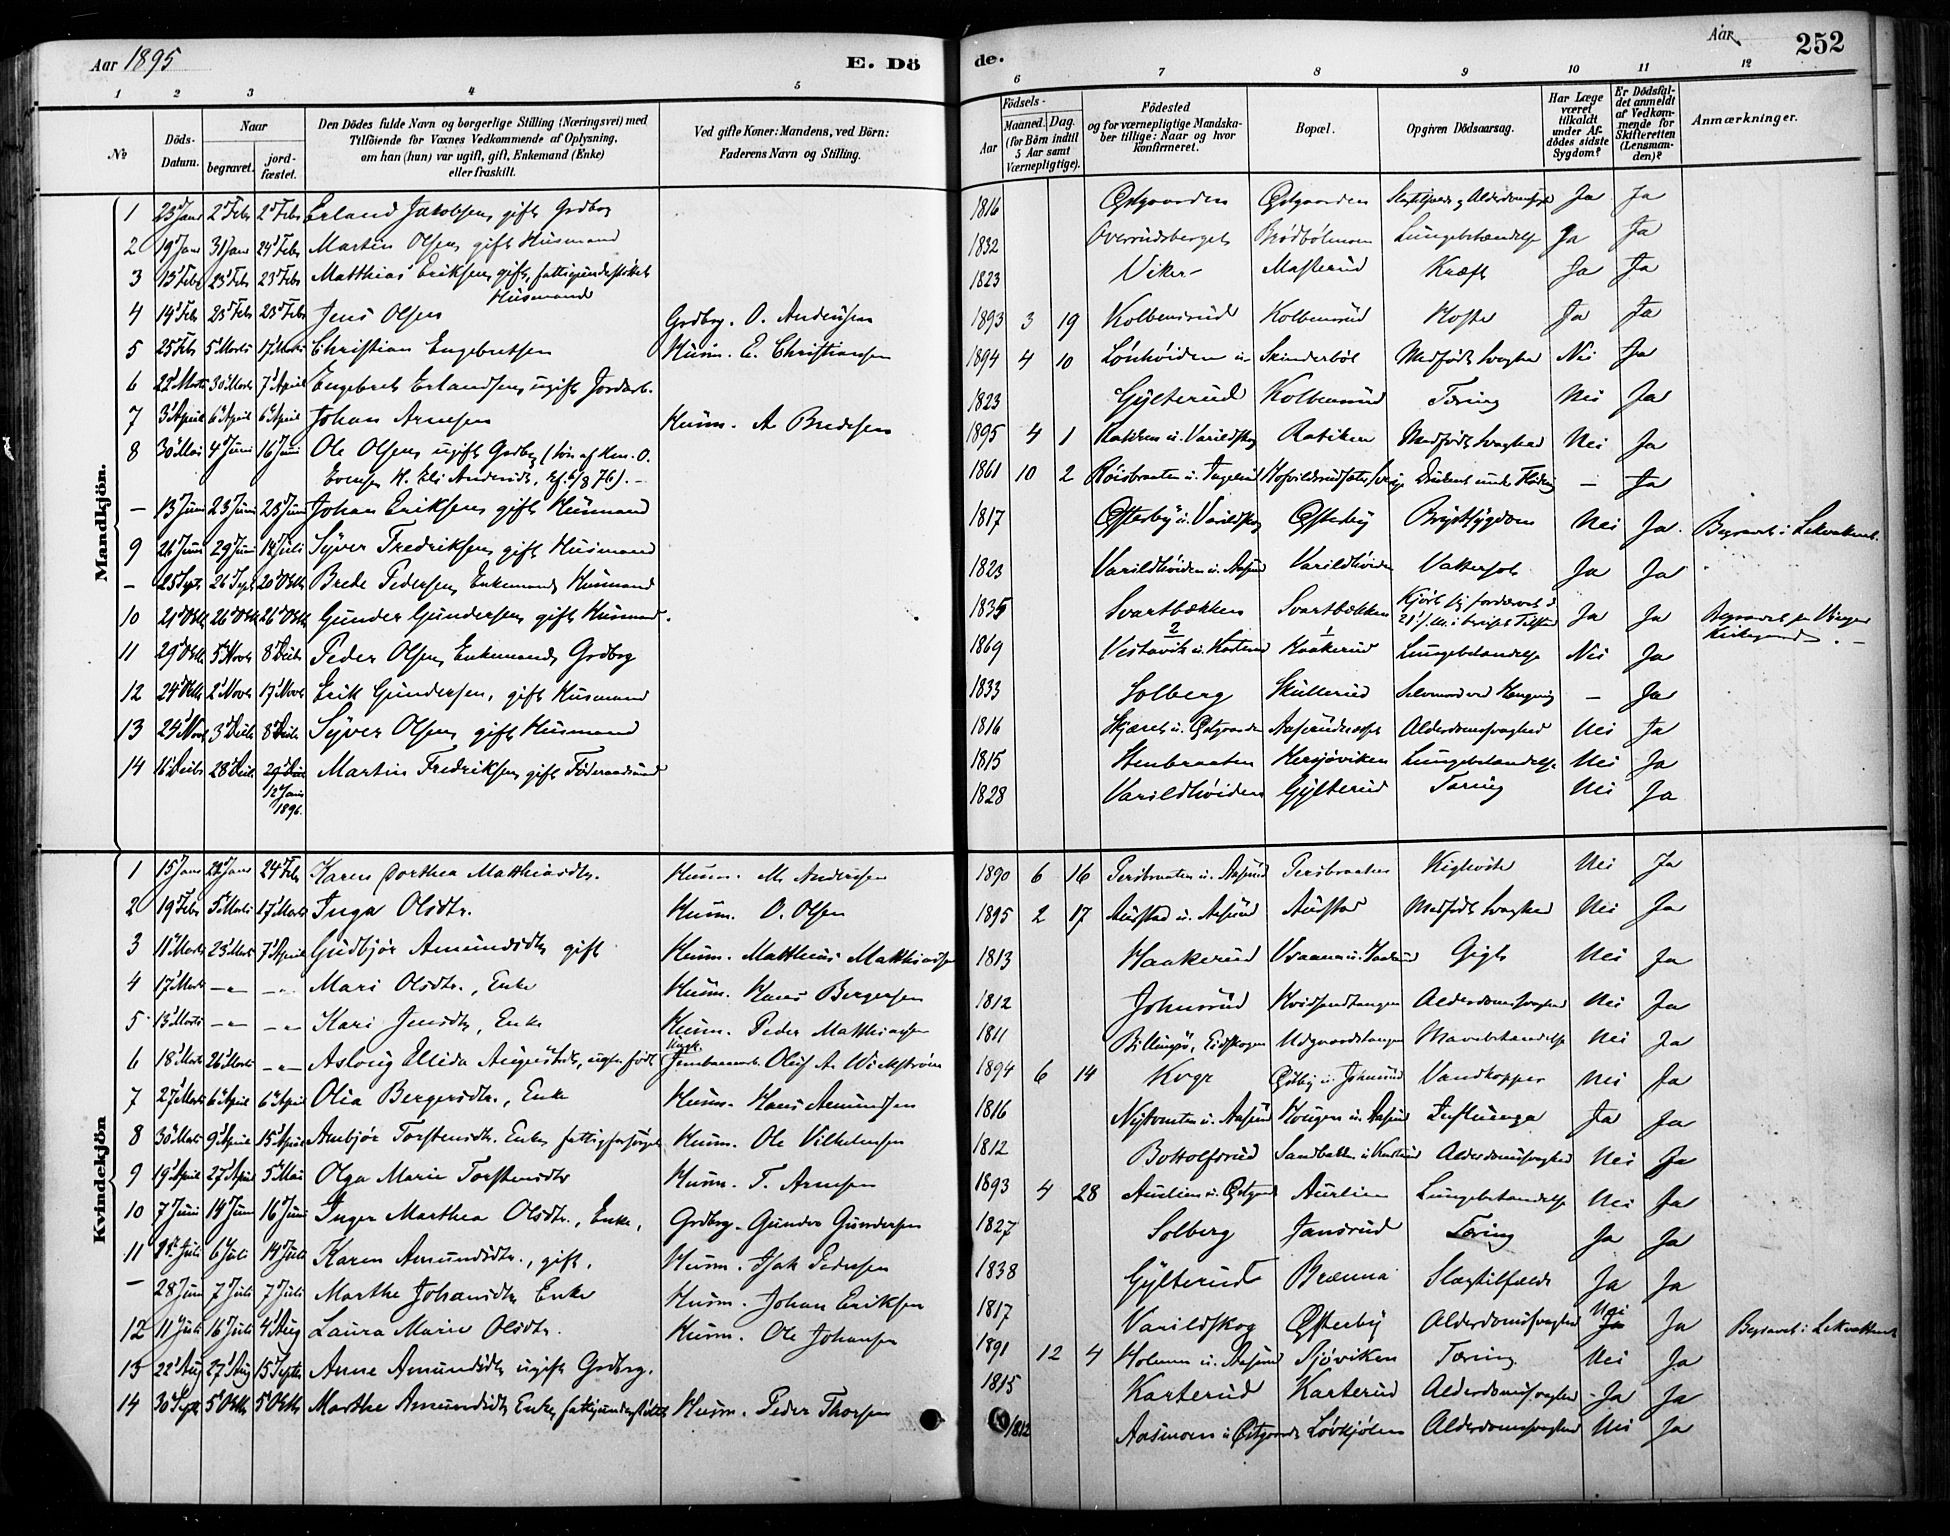 Aar 1895
E. Dö
1 2 3 4 5
№
Döds-
Datum.
Naar
begravet.
jord-
fæstet.
Den Dödes fulde Navn og borgerlige Stilling (Næringsvei) med
Tilföiende for Voxnes Vedkommende af Oplysning,
om han (hun) var ugift, gift, Enkemand (Enke)
eller fraskilt.
Ved gifte Koner: Mandens, ved Börn:
Faderens Navn og Stilling.
Mandkjön.
1 23 Jans 2 Febr 2 Febr Erland Jakobsen gift Grdbrg
2 19 Jans 31 Jans 24 Febr Martin Olsen gift Husmand
3 13 Febr 23 Febr 23 Febr Matthias Eriksen, gift, fattigunderstöttet
Husmand
4 14 Febr 23 Febr 23 Febr Jens Olsen Grdbrg. O. Andersen
5 25 Febr 5 Marts 17 Marts Christian Engebretsen Husm. E. Christiansen
6 22 Marts 30 Marts 7 April Engebret Erlandsen ugift Jordarb.
7 3 April 6 April 6 April Johan Arnesen Husm. A Bredesen
8 30 Mai 4 Juni 16 Juni Ole Olsen ugift Grdbrg (Sön af Hm. O.
Evensen H.
— 13 Juni 23 Juni 23 Juni Johan Eriksen gift Husmand
9 26 Juni 29 Juni 14 Juli Syver Fredriksen gift Husmand
— 23 Sept 26 Sept 20 Oktb Brede Pedersen Enkemand Husmand
10 21 Oktb 26 Oktb 26 Oktb Gunder Gundersen gift Husmand.
11 29 Oktb 5 Novb 8 Decb Peder Olsen Enkemand, Grdbrg
12 24 Oktb 2 Novb 17 Novb Erik Gundersen, gift Husmand
13 24 Novb 3 Decb 8 Decb Syver Olsen gift Husmand
14 16 Decb 28 Decb 29 Decb Martin Fredriksen gift Föderaadsmand
12 Jans
1896.
Kvindekjön
1 15 Jans 22 Jans 24 Febr Karen Dorthea Matthiasdtr. Husm. M. Andersen
2 19 Febr 5 Marts 17 Marts Inga Olsdtr. Husm. O. Olsen
3 11 Marts 23 Marts 7 April Gudbjør Amundsdtr gift Husm. Matthias Matthiasen
4 17 Marts —"— —"— Mari Olsdtr., Enke Husm. Hans Bergersen
5 13 Marts —"— —"— Kari Jensdtr, Enke Husm. Peder Matthiasen
6 18 Marts 26 Marts —"— Aslaug Elida Augustsdtr, Ungk. Jernbanearb. Oluf A. Wickström
7 27 Marts 6 April 6 April Olia Bergersdtr., Enke Husm. Hans Amundsen
8 30 Marts 9 April 15 April Ambjør Torstensdtr. Enke fattigforsörget Husm. Ole Vilhelmsen
9 19 April 27 April 5 Mai Olga Marie Torstensdtr Husm. T. Arnesen
10 7 Juni 14 Juni 16 Juni Inger Marthea Olsdtr., Enke, Grdbrg. Gunder Gundersen
11 Juli 6 Juli 14 Juli Karen Amundsdtr., gift, Husm. Isak Pedersen
— 28 Juni 7 Juli 7 Juli Marthe Johansdtr Enke Husm. Johan Eriksen
12 11 Juli 16 Juli 4 Aug Laura Marie Olsdtr. Husm. Ole Johansen
13 22 Aug 27 Aug 15 Septb Anne Amundsdtr ugift Grdbrg.
14 30 Sept 5 Oktb 5 Oktb Marthe Amundsdtr Enke, fattigunderstöttet Husm. Peder Thorsen
Aar
252
de.
6 7 8 9 10 11 12
Födsels-
Aar
Maaned. Dag.
(for Börn indtil
5 Aar samt
Værnepligtige).
Födested
og for værnepligtige Mandska-
ber tillige: Naar og hvor
konfirmeret.
Bopæl.
Opgiven Dödsaarsag.
Har Læge
været
tilkaldt
under Af-
dödes sidste
Sygdom?
Er Dödsfal-
det anmeldt
af Vedkom-
mende for
Skifteretten
(Lensman-
den)?
Anmærkninger.
1816 Østgaarden Østgaarden Slagtilfælde og Alderdomssvagh Ja Ja
1832 Overrudsberget Brødbølmoen Lungebetændelse Ja Ja
1823 Viker Masterud Kræft Ja Ja
1893 3 19 Kolbensrud Kolbensrud Hoste Ja Ja
1894 4 10 Lønhøiden Skinderböl Medfødt Svaghed Nei Ja
1823 Gylterud Kolbensrud Tæring Nei Ja
1895 4 1 Ratiken u. Varildskog Ratiken Medfødt Svaghed Nei Ja
1861 10 2 Druknet under Flødning — Ja
1817 Østerby u. Varildskog Østerby Brystsygdom Nei Ja. Begravet i Lekvattnet.
1823 Varildhøiden u. Aasrud Varildhøiden Vattersot Ja Ja
1835 Svartbækken Svartbækken Ja Ja Begravet paa Vinger
Kirkegaard.—
1869 Haakerud Lungebetændelse Nei Ja
1833 Solberg Skullerud Selvmord ved Hængning — Ja
1816 Skjæret u. Østgaarden Aaserud Alderdomssvaghed Nei Ja
1815 Stenbraaten Kersjøviken Lungebetændelse Nei Ja
1828 Varildhøiden Gylterud Tæring Nei Ja
1890 6 16 Persbraaten u. Aasrud Persbraaten Kighoste Nei Ja
1895 2 17 Austad u. Aasrud Austad Medfødt Svaghed Nei Ja
1813 Haakerud Gigt Nei Ja
1812 Johnsrud Alderdomssvaghed Nei Ja
1811 Eidskogen Mavebetændelse Nei Ja
1894 6 14 Østby u. Johnsrud Vandkopper Nei Ja
1816 Haugen u. Aasrud Influenza Ja Ja
1812 Bottolfsrud Sandbakken Alderdomssvaghed Nei Ja
1893 4 28 Aurlien u. Østgaard Aurlien Lungebetændelse Nei Ja
1827 Solberg Jansrud Tæring Ja Ja
1838 Gylterud Brænna Slagtilfælde Ja Ja
1817 Varildskog Østerby Alderdomssvaghed Nei Ja Begravet i Lekvattnet
1891 12 4 Holmen u. Aasrud Sjøviken Tæring Nei Ja
1815 Karterud Karterud Alderdomssvaghed Ja Ja
1812 Aasmoen u Østgaarden Løvhjølen Alderdomssvaghed Nei Ja